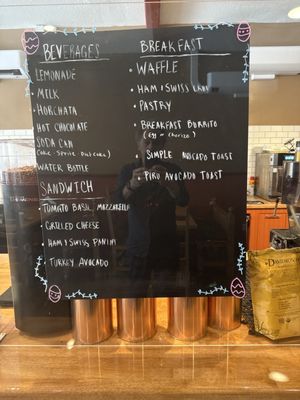 BEVERAGES
LEMONADE
• MILK
• HORCHATA
HOT CHOCOLATE
SODA CAN
WATER BOTTLE
SANDWICH
• TOMATO BASIL MOZZARELLA
• GRILLED CHEESE
• HAM & SWISS PANINI
• TURKEY AVOCADO
BREAKFAST
• WAFFLE
• HAM & SWISS
• PASTRY
• BREAKFAST BURRITO
(EGG w/ CHORIZO)
• SIMPLE AVOCADO TOAST
• PIRU AVOCADO TOAST